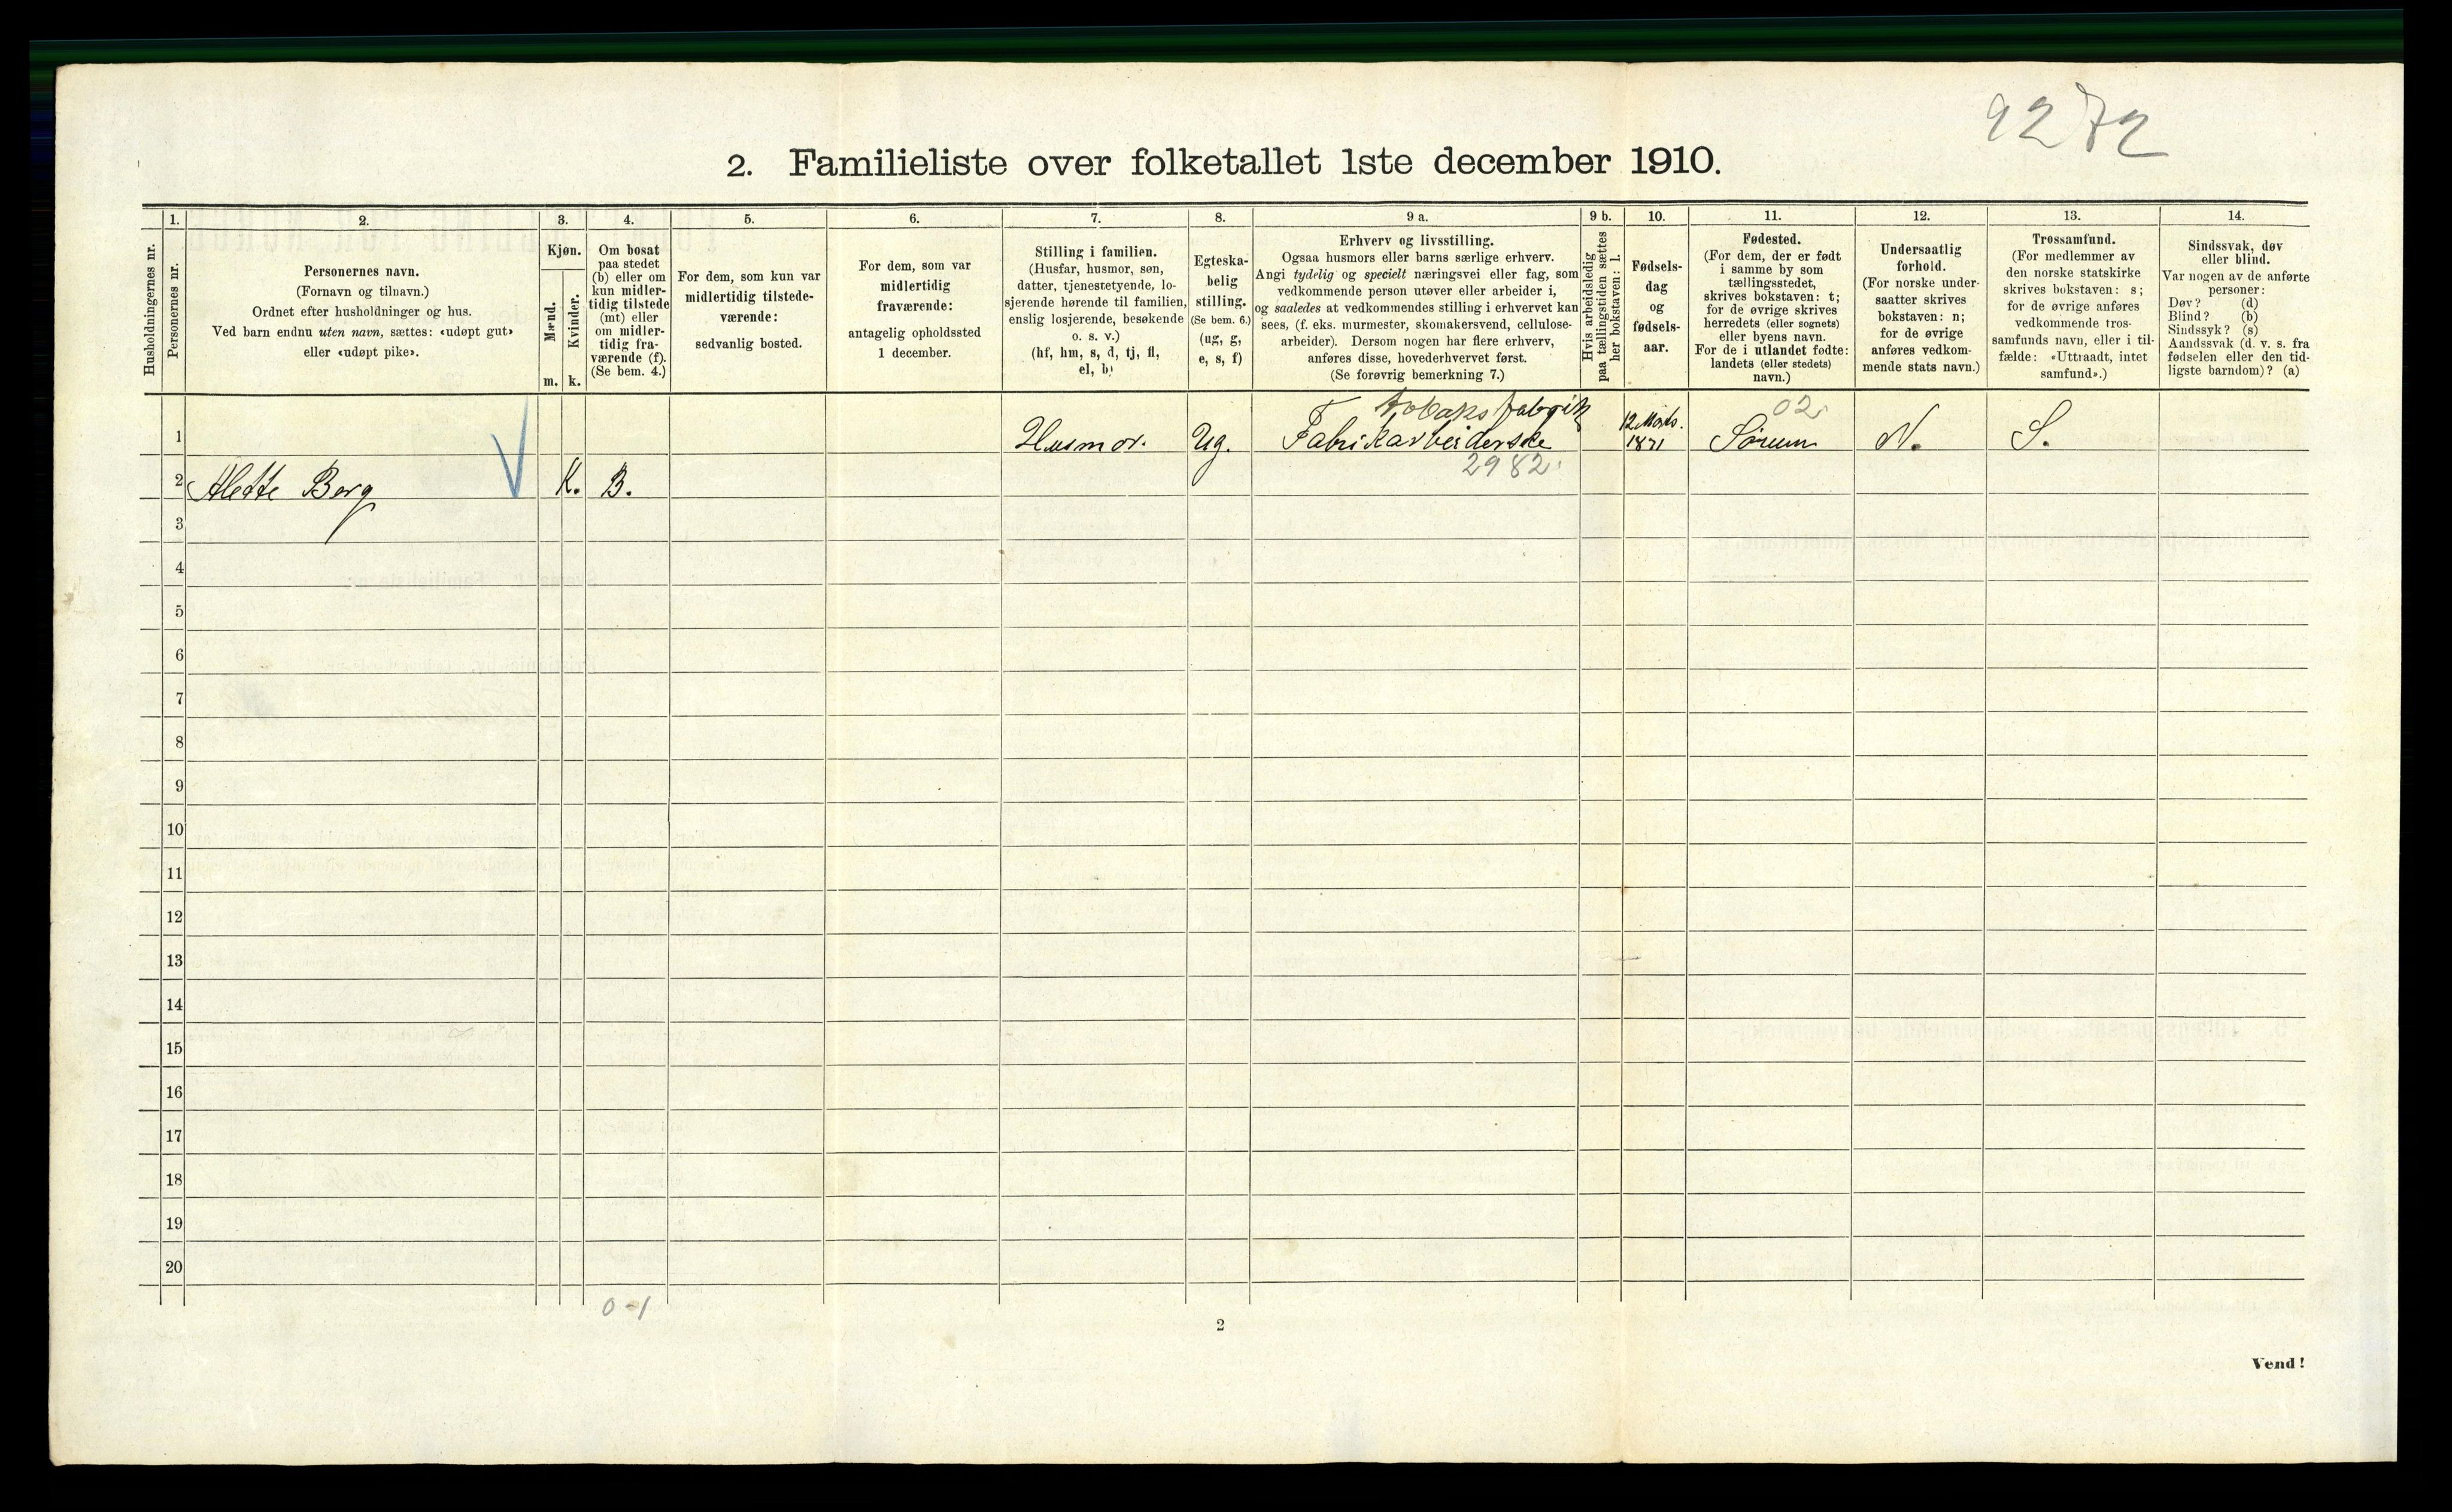 9272
2. Familieliste over folketallet 1ste december 1910.
Husholdningernes nr.
1.
Personernes nr.
2.
Personernes navn.
(Fornavn og tilnavn.)
Ordnet efter husholdninger og hus.
Ved barn endnu uten navn, sættes: «udøpt gut»
eller «udøpt pike».
3.
Kjøn.
Mænd.
Kvinder.
m. k.
4.
Om bosat
paa stedet
(b) eller om
kun midler-
tidig tilstede
(mt) eller
om midler-
tidig fra-
værende (f).
(Se bem. 4.)
5.
For dem, som kun var
midlertidig tilstede-
værende:
sedvanlig bosted.
6.
For dem, som var
midlertidig
fraværende:
antagelig opholdssted
1 december.
7.
Stilling i familien.
(Husfar, husmor, søn,
datter, tjenestetyende, lo-
sjerende hørende til familien,
enslig losjerende, besøkende
o. s. v.)
(hf, hm, s, d, tj, fl,
el, b)
8.
Egteska-
belig
stilling.
(Se bem. 6.)
(ug, g,
e, s, f)
9 a.
Erhverv og livsstilling.
Ogsaa husmors eller barns særlige erhverv.
Angi tydelig og specielt næringsvei eller fag, som
vedkommende person utøver eller arbeider i,
og saaledes at vedkommendes stilling i erhvervet kan
sees, (f. eks. murmester, skomakersvend, cellulose-
arbeider). Dersom nogen har flere erhverv,
anføres disse, hovederhvervet først.
(Se forøvrig bemerkning 7.)
9 b.
Hvis arbeidsledig
paa tællingstiden sættes
her bokstaven: l.
10.
Fødsels-
dag
og
fødsels-
aar.
11.
Fødested.
(For dem, der er født
i samme by som
tællingsstedet,
skrives bokstaven: t;
for de øvrige skrives
herredets (eller sognets)
eller byens navn.
For de i utlandet fødte:
landets (eller stedets)
navn.)
12.
Undersaatlig
forhold.
(For norske under-
saatter skrives
bokstaven: n;
for de øvrige
anføres vedkom-
mende stats navn.)
13.
Trossamfund.
(For medlemmer av
den norske statskirke
skrives bokstaven: s;
for de øvrige anføres
vedkommende tros-
samfunds navn, eller i til-
fælde: «Uttraadt, intet
samfund».)
14.
Sindssvak, døv
eller blind.
Var nogen av de anførte
personer:
Døv? (d)
Blind? (b)
Sindssyk? (s)
Aandssvak (d. v. s. fra
fødselen eller den tid-
ligste barndom)? (a)
Tobaksfabrik 02
1 Husmor. Ug. Fabrikarbeiderske 12 Marts. 1871 Sørum N. S.
2982
2 Alette Berg K. B.
3
4
5
6
7
8
9
10
11
12
13
14
15
16
17
18
19
20
0-1
2
Vend!